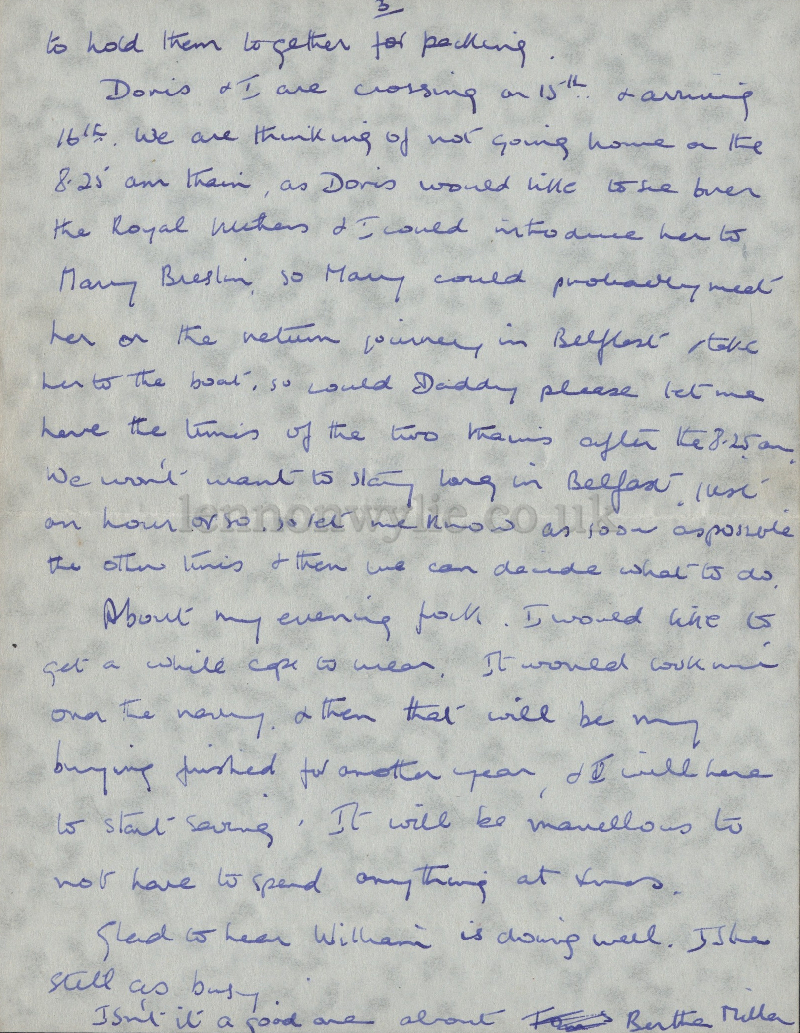 3
to hold them together for packing.
Doris & I are crossing on 15th. & arriving
16th. We are thinking of not going home on the
8.25 am train, as Doris would like to see over
the Royal & I could introduce her to
Mary Breslin, so Mary could probably meet
her on the return journey in Belfast & take
her to the boat. so could Daddy please let me
have the times of the two trains after the 8.25 am.
We won't want to stay long in Belfast, just
an hour or so. so let me know as soon as possible
the other times & then we can decide what to do.
About my evening frock. I would like to
get a white cape to wear. It would look nice
over the navy. & then that will be my
buying finished for another year, & I will have
to start saving. It will be marvellous to
not have to spend anything at Xmas.
Glad to hear William is doing well. Is he
still as busy
Isn't it a good one about Bertha Miller
lennonwylie.co.uk